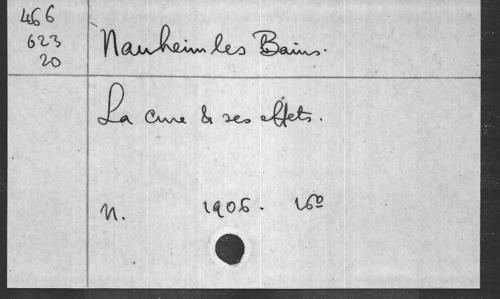 466
623
20
Nauheim les Bains.
La cure & ses effets.
N. 1906. 16º